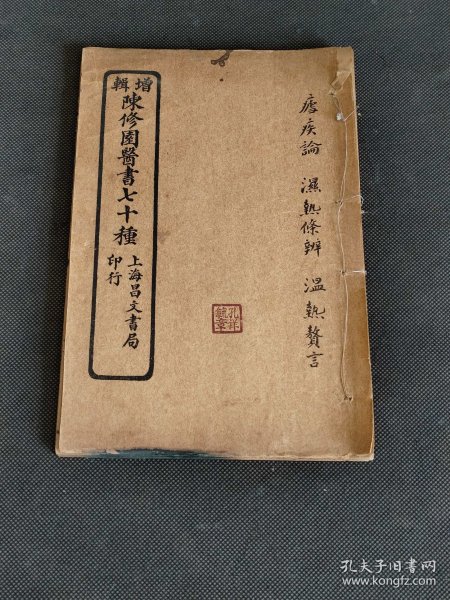 瘧疾論 濕熱條辨 溫熱贅言
增輯
陳修園醫書七十種
上海昌文書局
印行
孔夫子旧书网
www.kongfz.com